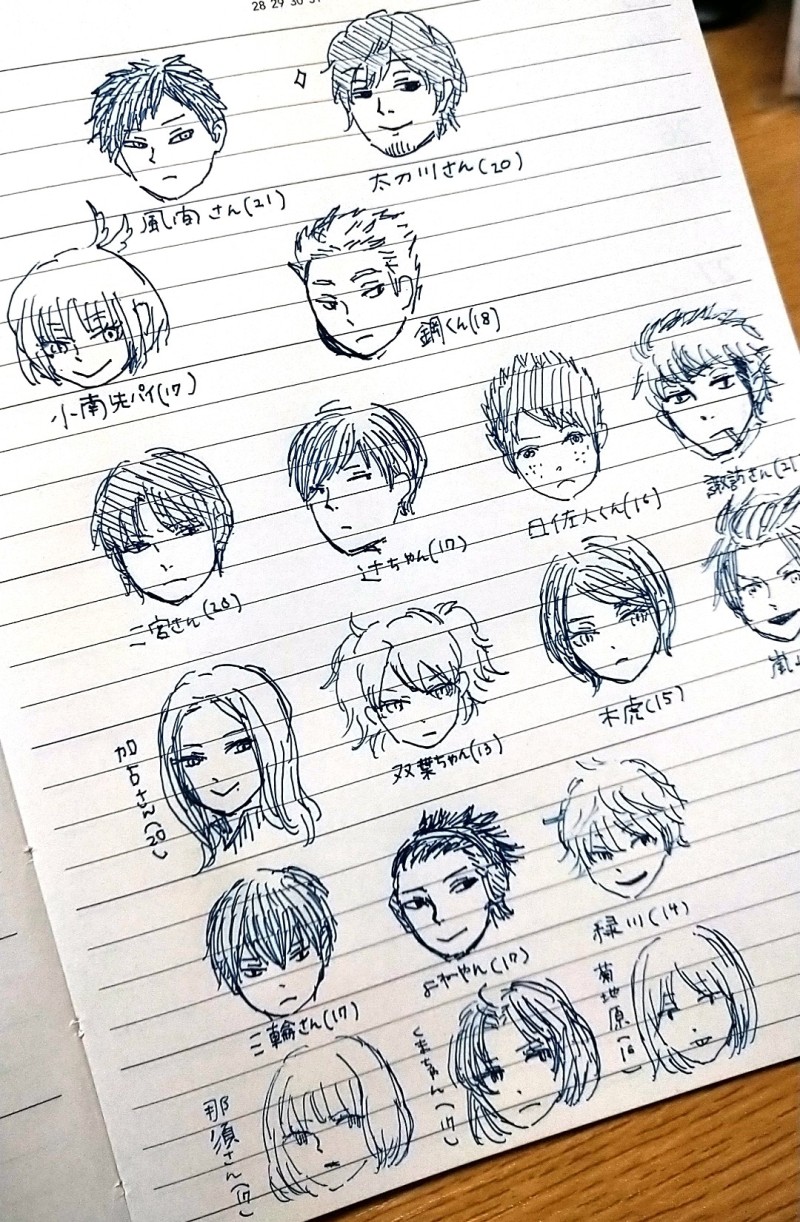 28 29 30 31
太刀川さん(20)
風間さん(21)
鋼くん(18)
小南先パイ(17)
諏訪さん(21
日佐人くん(16)
辻ちゃん(17)
二宮さん(20)
嵐山
木虎(15)
双葉ちゃん(13)
加古さん(20)
緑川(14)
よねやん(17)
三輪さん(17)
菊地原(16)
くまちゃん(17)
那須さん(17)